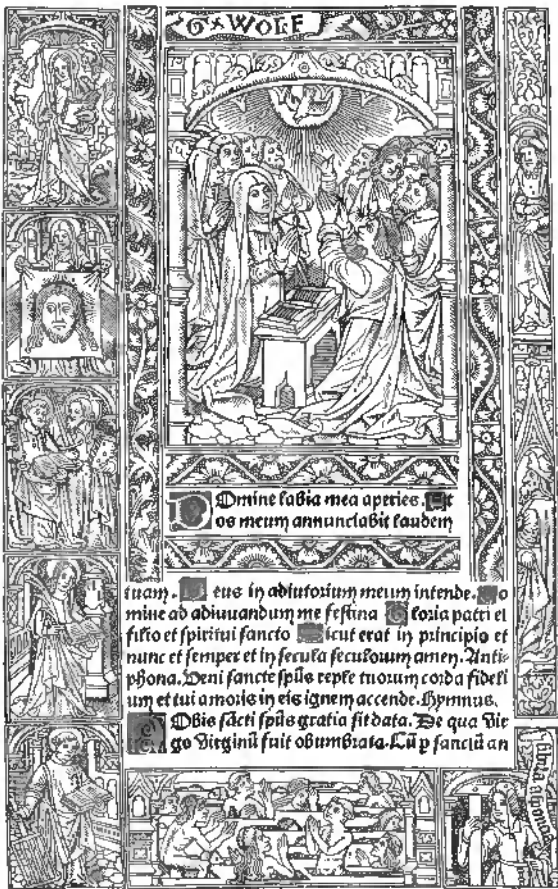 G WOLF
Domine labia mea aperies. Et
os meum annunciabit laudem
tuam. Deus in adiutorium meum intende. Do
mine ad adiuuandum me festina Gloria patri et
filio et spiritui sancto Sicut erat in principio et
nunc et semper et in secula seculorum amen. Anti-
phona. Veni sancte spūs reple tuorum corda fideli
um et tui amoris in eis ignem accende. Hymnus.
Nobis sācti spūs gratia sit data. De qua vir
go virginū fuit obumbrata. Cū p sanctū an